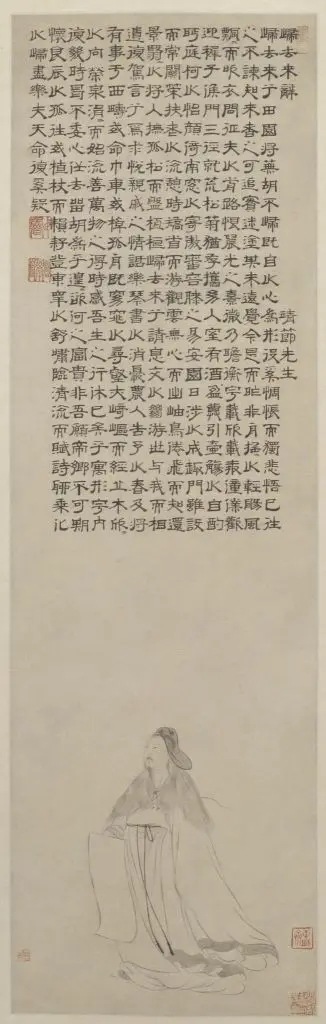 歸去來辭 靖節先生
歸去來兮田園將蕪胡不歸既自以心為形役奚惆悵而獨悲悟已往
之不諫知來者之可追實迷塗其未遠覺今是而昨非舟搖以輕颺風
飄而吹衣問征夫以前路恨晨光之熹微乃瞻衡宇載欣載奔僮僕歡
迎稚子候門三徑就荒松菊猶存攜幼入室有酒盈樽引壺觴以自酌
眄庭柯以怡顏倚南窗以寄傲審容膝之易安園日涉以成趣門雖設
而常關策扶老以流憩時矯首而游觀雲無心而出岫鳥倦飛而知還
景翳翳以將入撫孤松而盤桓歸去來兮請息交以絕游世與我而相
遺復駕言兮焉求悅親戚之情話樂琴書以消憂農人告予以春及將
有事于西疇或命巾車或棹孤舟既窈窕以尋壑亦崎嶇而經丘木欣欣
以向榮泉涓涓而始流善萬物之得時感吾生之行休已矣乎寓形宇內
復幾時曷不委心任去留胡為乎遑遑欲何之富貴非吾願帝鄉不可期
懷良辰以孤往或植杖而耘耔登東皋以舒嘯臨清流而賦詩聊乘化
以歸盡樂夫天命復奚疑